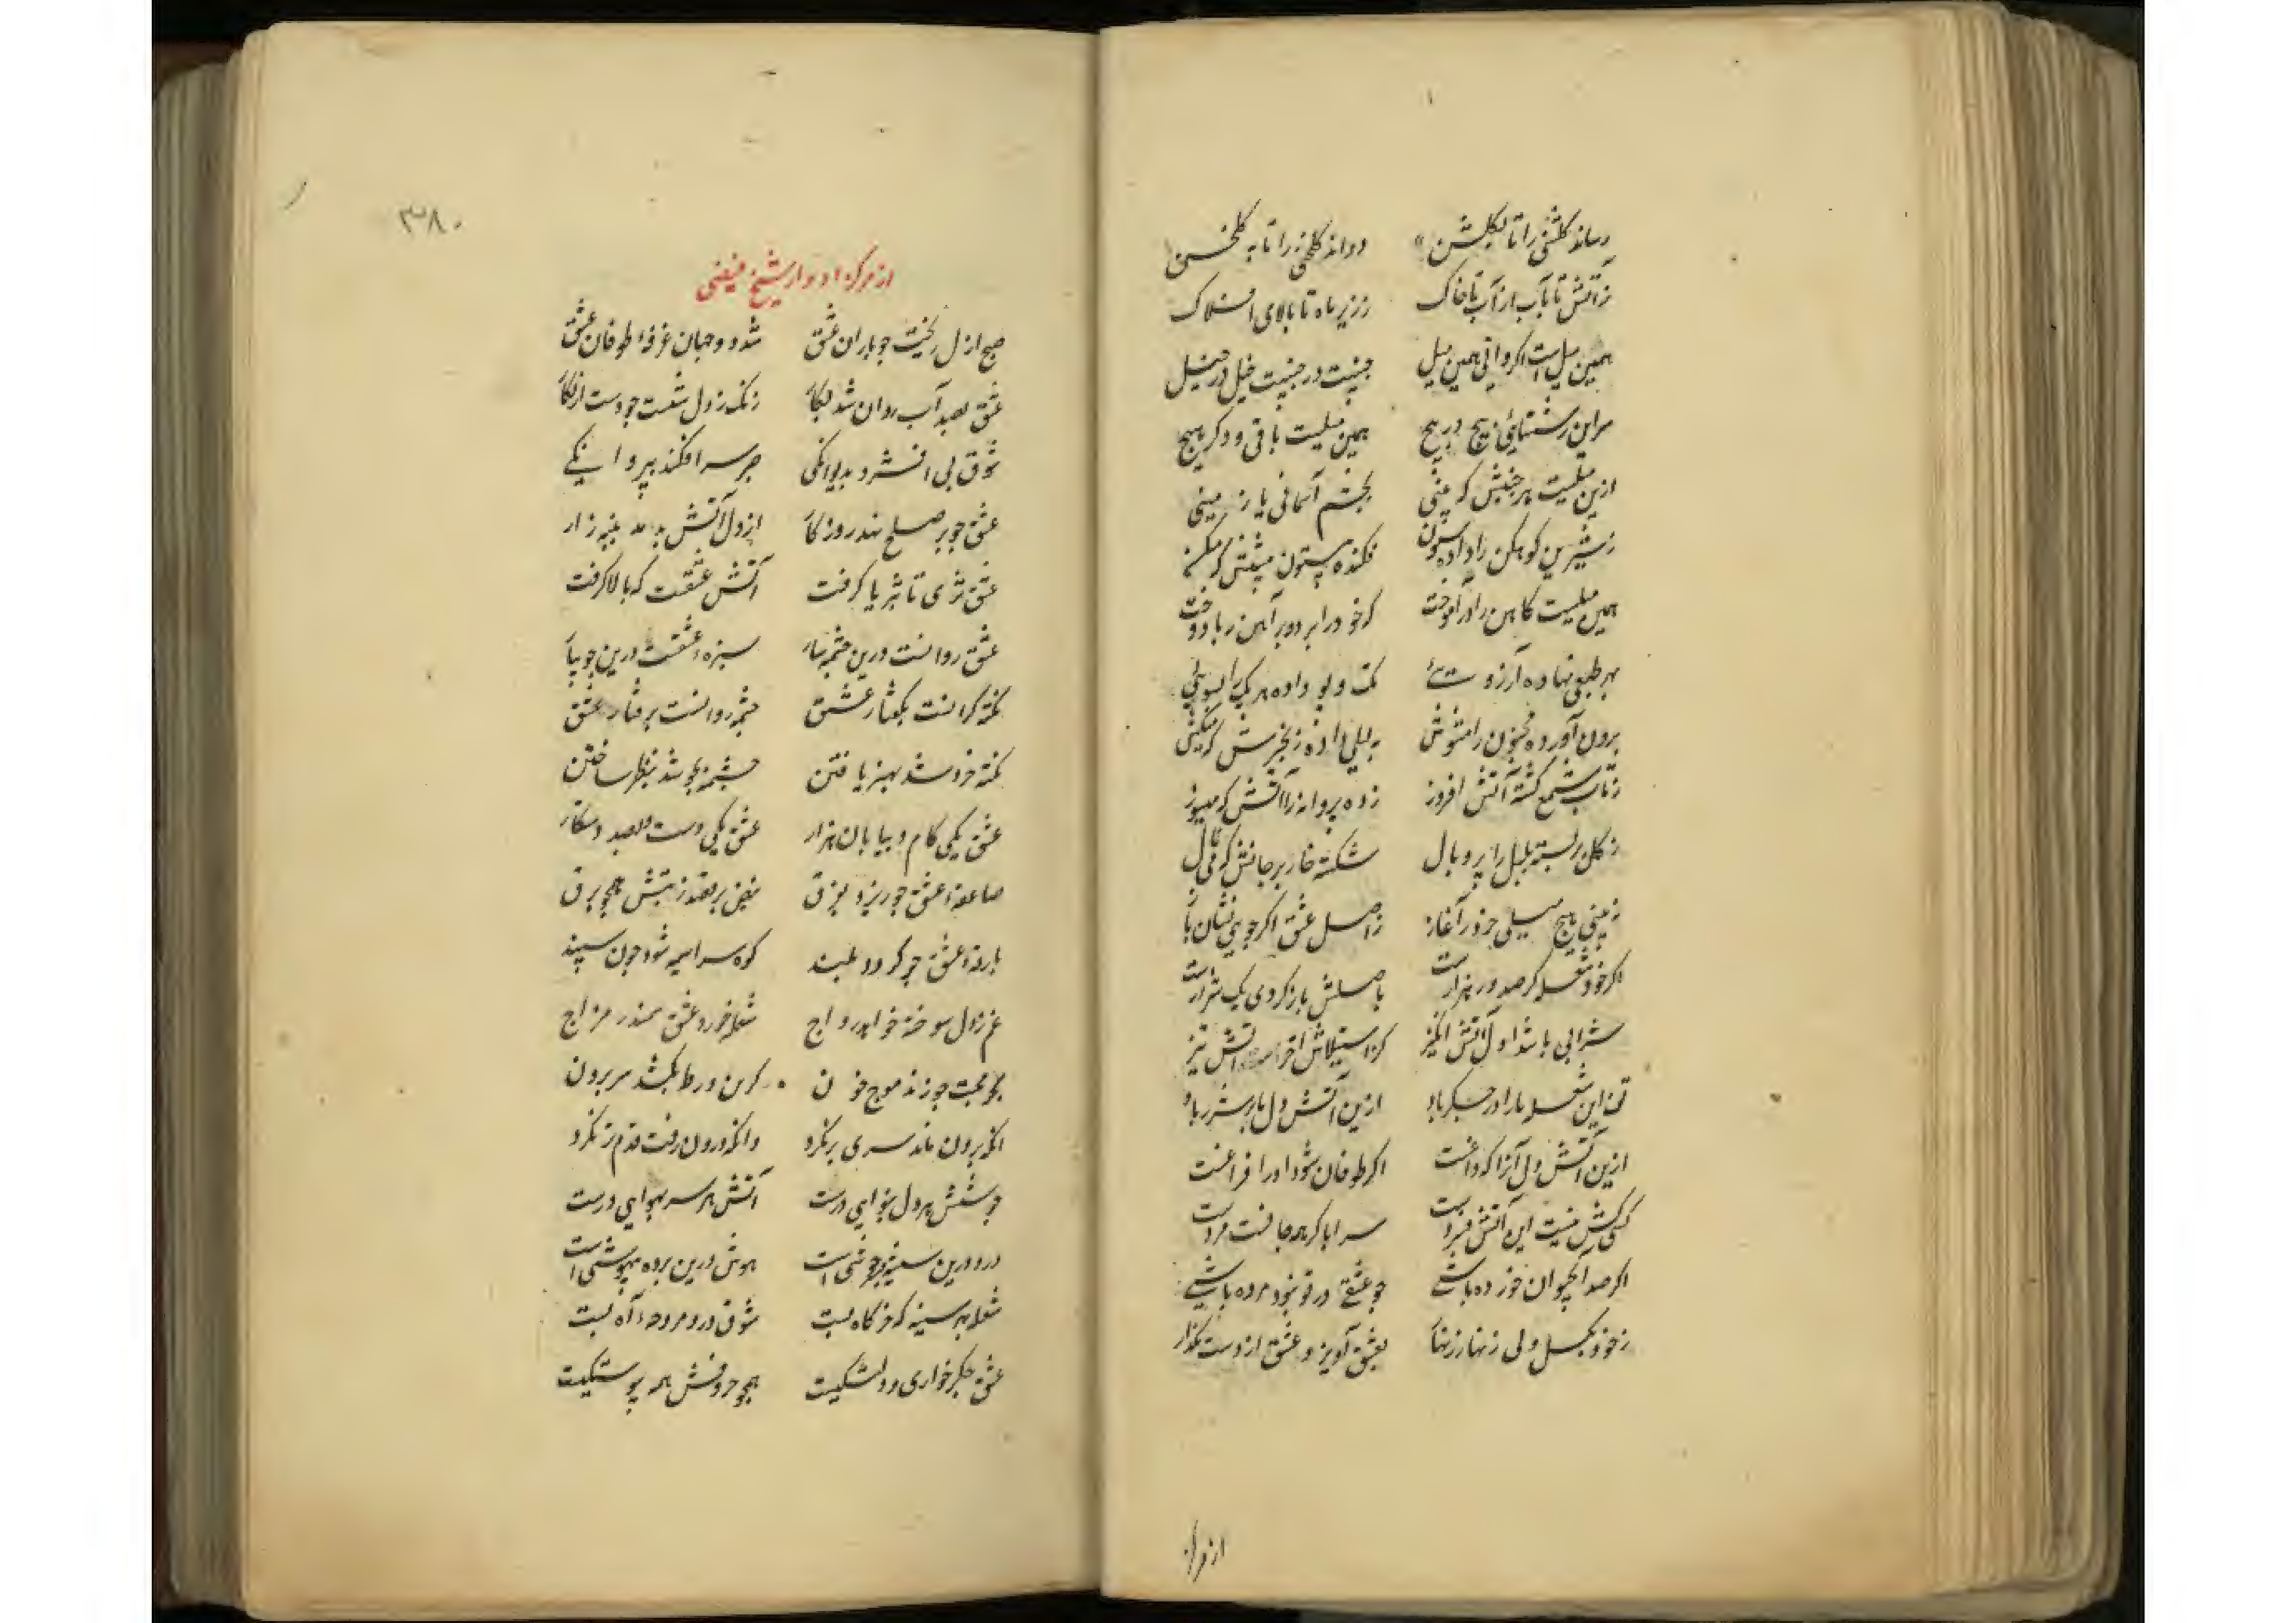 رساند گلشنی را تا بگلشن دواند گلخنی را تا به گلخن
ز آتش تا بآب از آب تا خاک ز زیر ماه تا بالای افلاک
همین میل است اگر دانی همین میل جنیبت در جنیبت خیل در خیل
سر این رشتهای پیچ در پیچ همین میلست باقی و دگر هیچ
ازین میلست هر جنبش که بینی بجسم آسمانی یا زمینی
ز شیرین کوهکن را داده شیون فکنده بیستون پیشش که میکن
همین میلست کاهن را در آموخت که خود را برد و بر آهن ربا دوخت
بهر طبعی نهاده آرزوئی تک و پو داده هر یک را بسوئی
برون آورده مجنون را مشوش به لیلی داده زنجیرش که میکش
ز تاب شمع گشته آتش افروز زده پروانه را آتش که میسوز
ز گل بر بسته بلبل را پر و بال شکسته خار بر جانش که می نال
نبینی هیچ میلی جز در آغاز ز اصل عشق اگر جویی نشان باز
اگر خود شعله گر صد ور هزارست باصلش باز گردی یک شرارست
شراری باشد اول آتش انگیز کز استیلاش آخر آتش تیز
تف این شعله ما را در جگر باد ازین آتش دل ما پر شرر باد
ازین آتش دل آنرا که داغست اگر طوفان شود او را فراغست
کسی کش نیست این آتش فسردست سراپا گر همه جانست مردست
اگر صد آب حیوان خورده باشی چو عشقی در تو نبود مرده باشی
ز خود بگسل ولی زنهار زنهار بعشق آویز و عشق از دست مگذار
از مرکز
۳۸۰
از مرکز ادوار شیخ فیضی
صبح ازل ریخت چو باران عشق شد دو جهان غرقهٔ طوفان عشق
عشق بصد آب روان شد بکار زنگ ز دل شست چو دست از نگار
شوق پی افشرد بدیوانگی سر افکند به پروانگی
عشق چو بر صلح نهد روزگار از دل آتش بدمد پنبه زار
عشق ثری تا ثریا گرفت آتش عشقست که بالا گرفت
عشق روانست درین چشمه سار سبزهٔ عشقست درین جویبار
نکته گرانست بگفتار عشق چشمه روانست برفتار عشق
نکته فروشد بهنر یافتن چشمه بجوشد بنظر ساختن
عشق یکی گام و بیابان هزار عشق یکی دست و بصد دستکار
صاعقهٔ عشق چو ریزد بفرق نبض برقصد ز تپش همچو برق
بارقهٔ عشق چو گردد بلند کوه سراسیمه شود چون سپند
غم ز دل سوخته خواهد رواج شعله خورد عشق سمندر مزاج
بحر محبت چو زند موج خون کس ورطه نکشد سر برون
آنکه برون ماند سری بر نکرد وانکه درون رفت قدم تر نکرد
جوشش هر دل بنوایی درست آتش هر سر بهوایی درست
درد درین سینه بجوشی است هوش درین پرده بیهوشی است
شعله بهر سینه که خرگاه بست شوق درو مروحهٔ آه بست
عشق جگرخواری و دلشکنیست همچو حروفش همه پیوستگیست